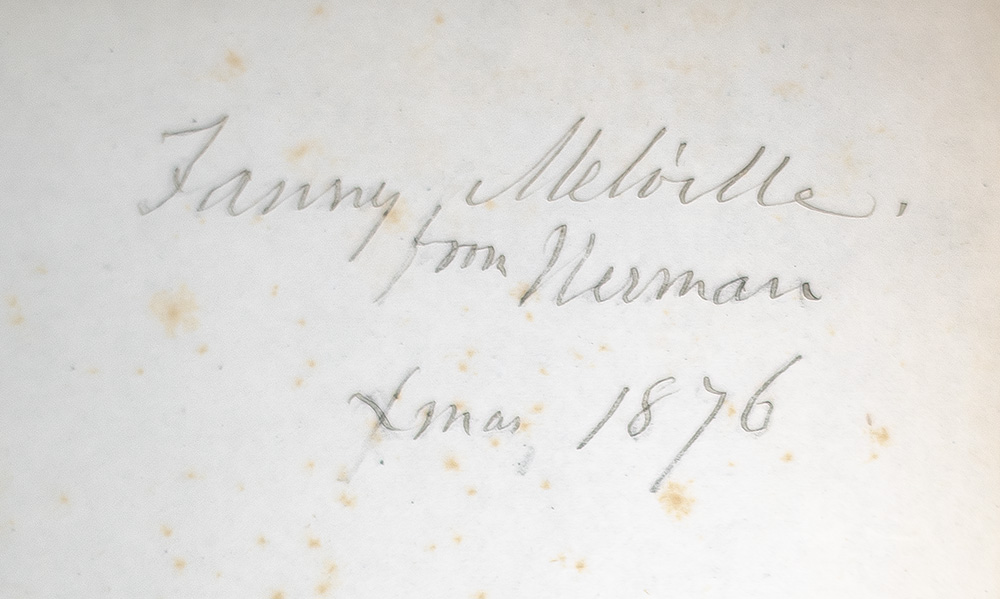 Fanny Melville.
from Herman
Xmas, 1876